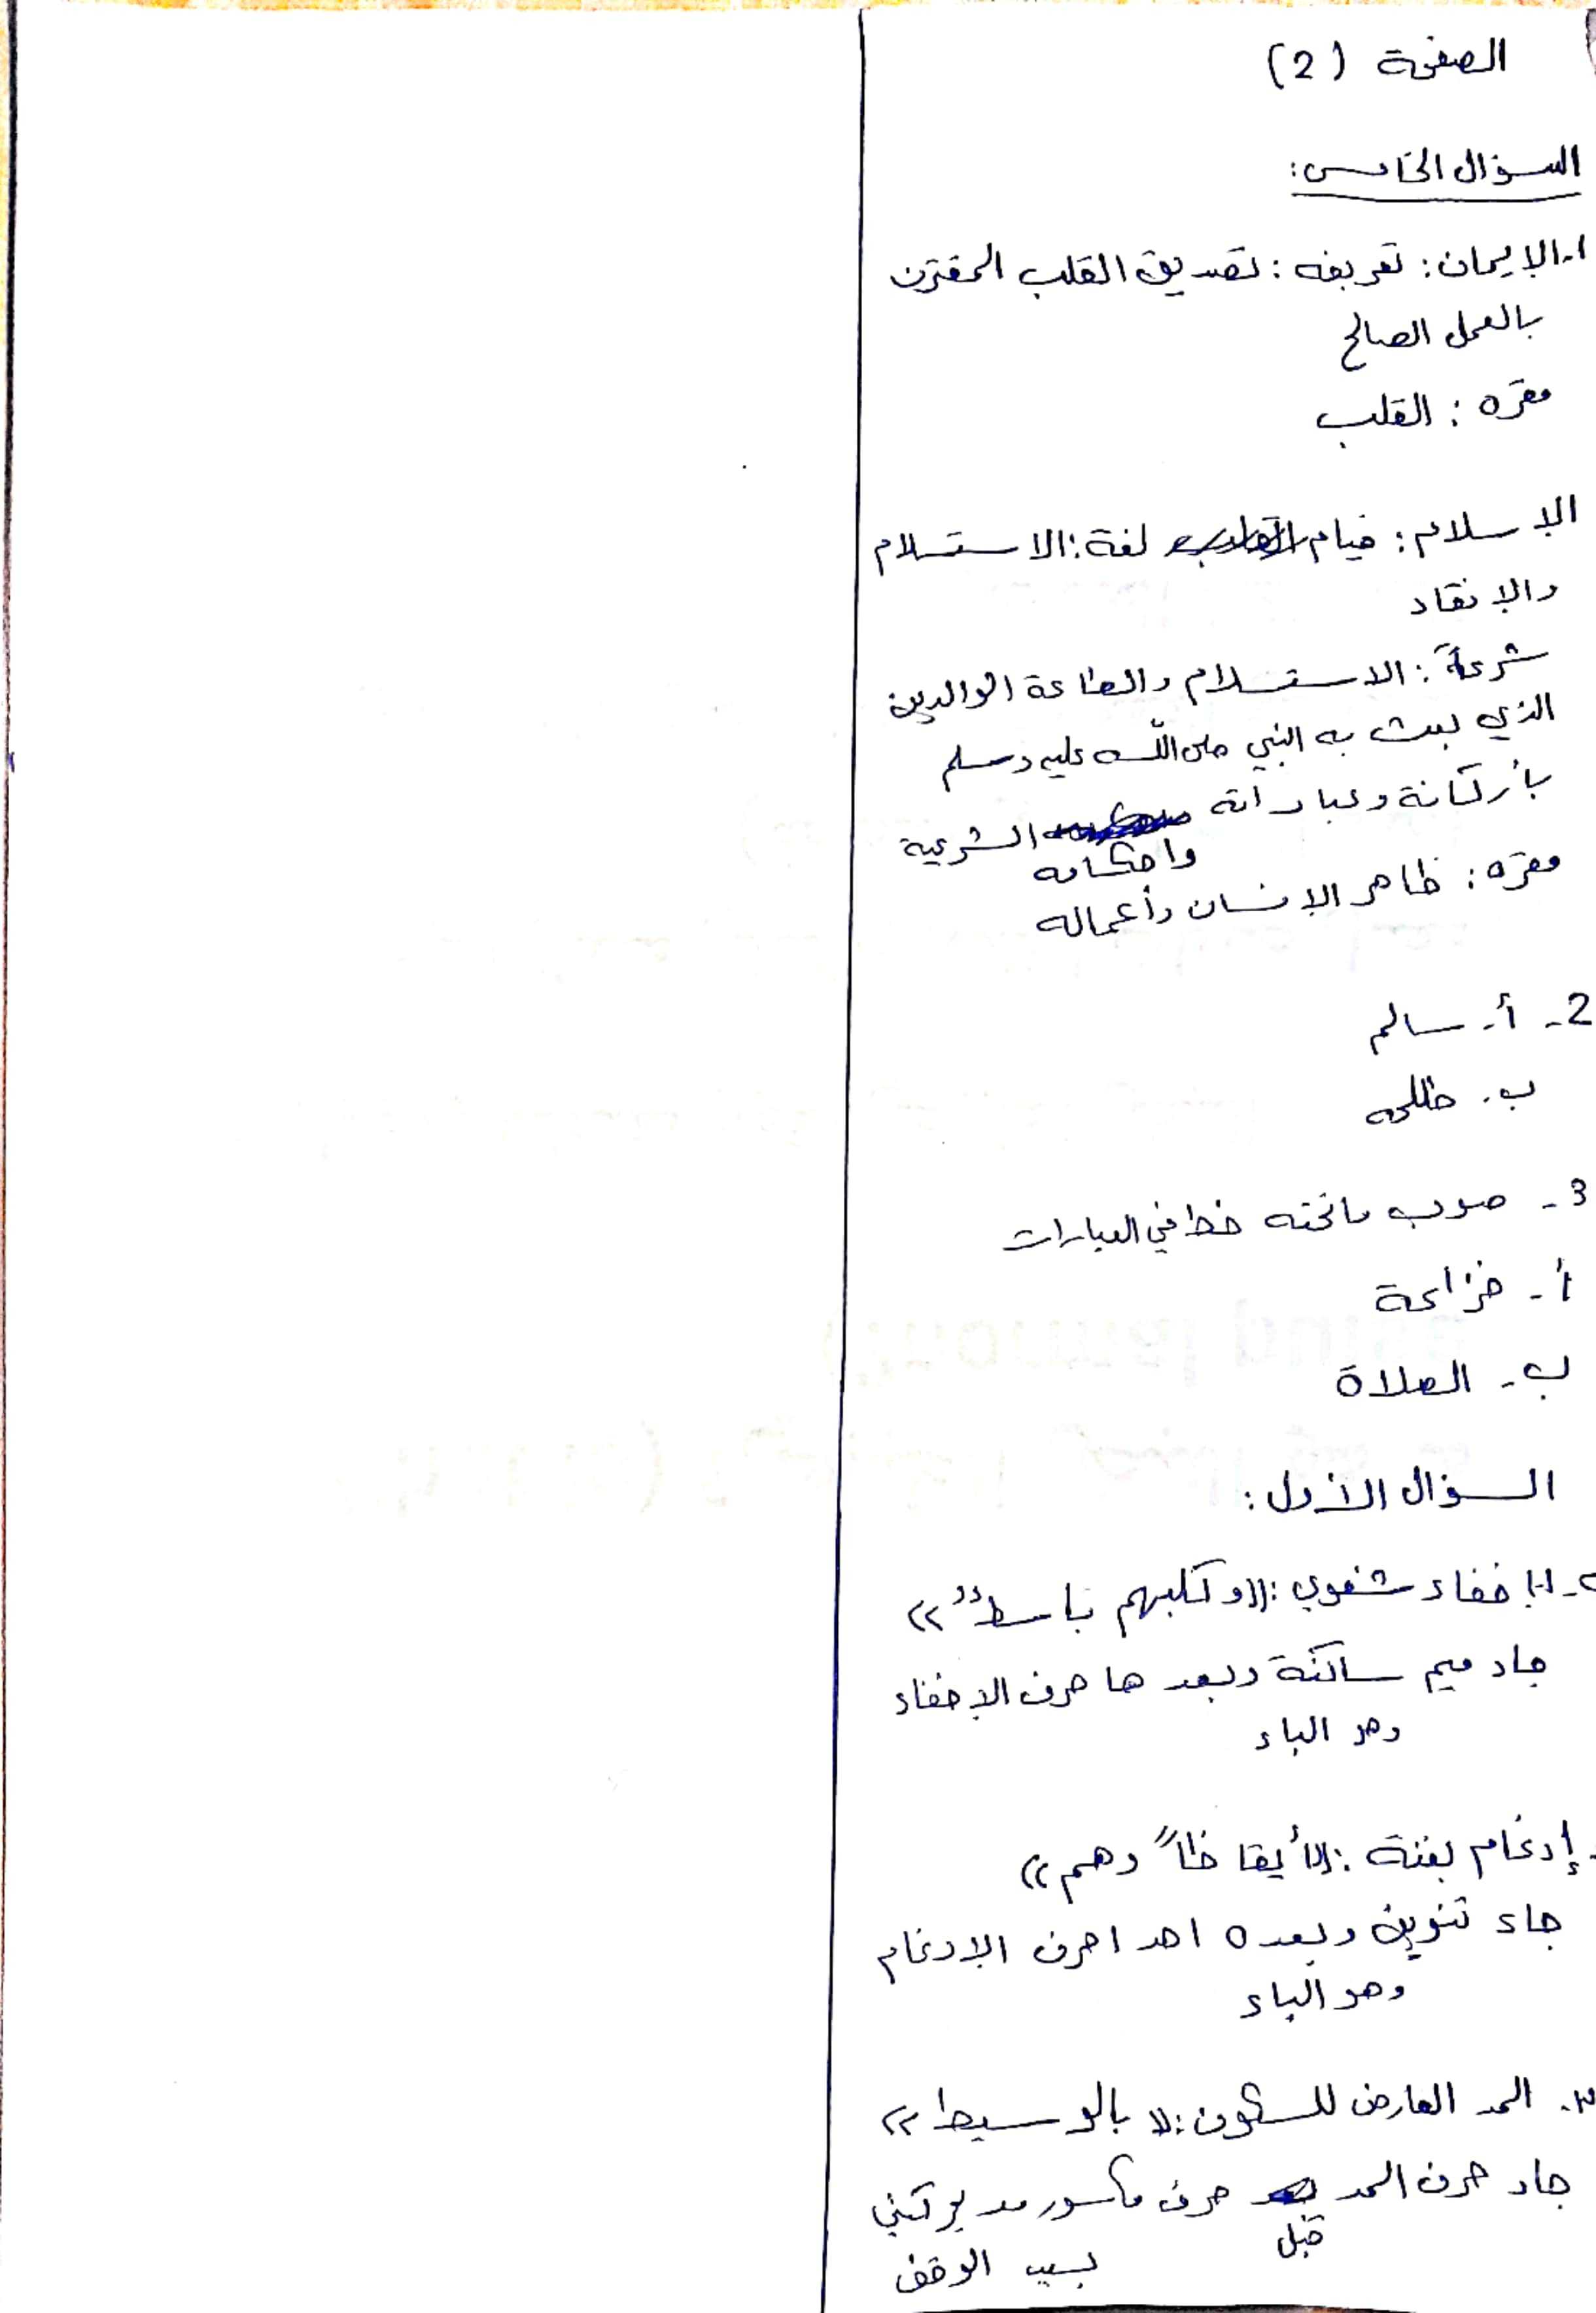 الصفحة (2)
السؤال الخامس:
١- الإيمان: تعريفه: تصديق القلب المقترن
بالعمل الصالح
مقره: القلب
الإسلام: قيام لغة: الاستسلام
والإنقاد
شرعاً: الاستسلام والطاعة الوالدين
الذي بعث به النبي صلى الله عليه وسلم
بأركانة وعباداته الشرعية
واحكامه
مقره: ظاهر الإنسان وأعماله
2- أ- سالم
ب. طلحه
3- صوب ماتحته خط في العبارات
أ- خزاعة
ب- الصلاة
السؤال الأول:
إخفاء شفوي: ((وكلبهم باسطٌ))
جاء ميم ساكنة وبعدها حرف الإخفاء
وهو الباء
إدغام بغنة: ((أيقاظاً وهم))
جاء تنوين وبعده احد احرف الإدغام
وهو الباء
٣. المد العارض للسكون: ((بالوسيط))
جاء حرف المد حرف مكسور مد بحركتين
قبل
بسبب الوقف